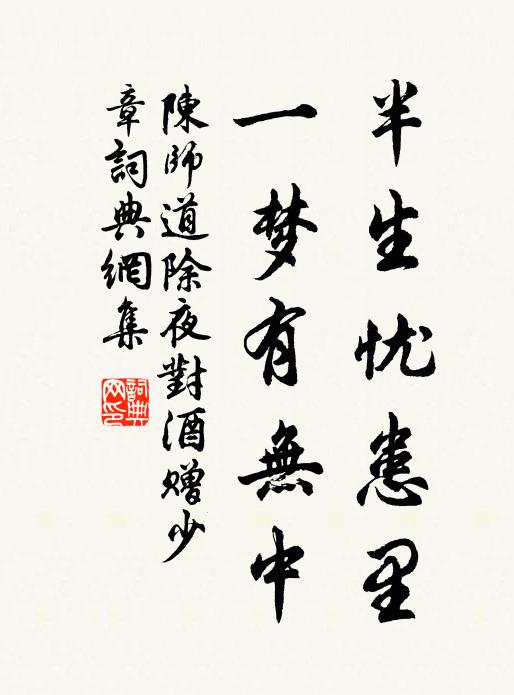 半生忧患里
一梦有無中
陳師道除夜對酒赠少
章詞典網集
詞典网印